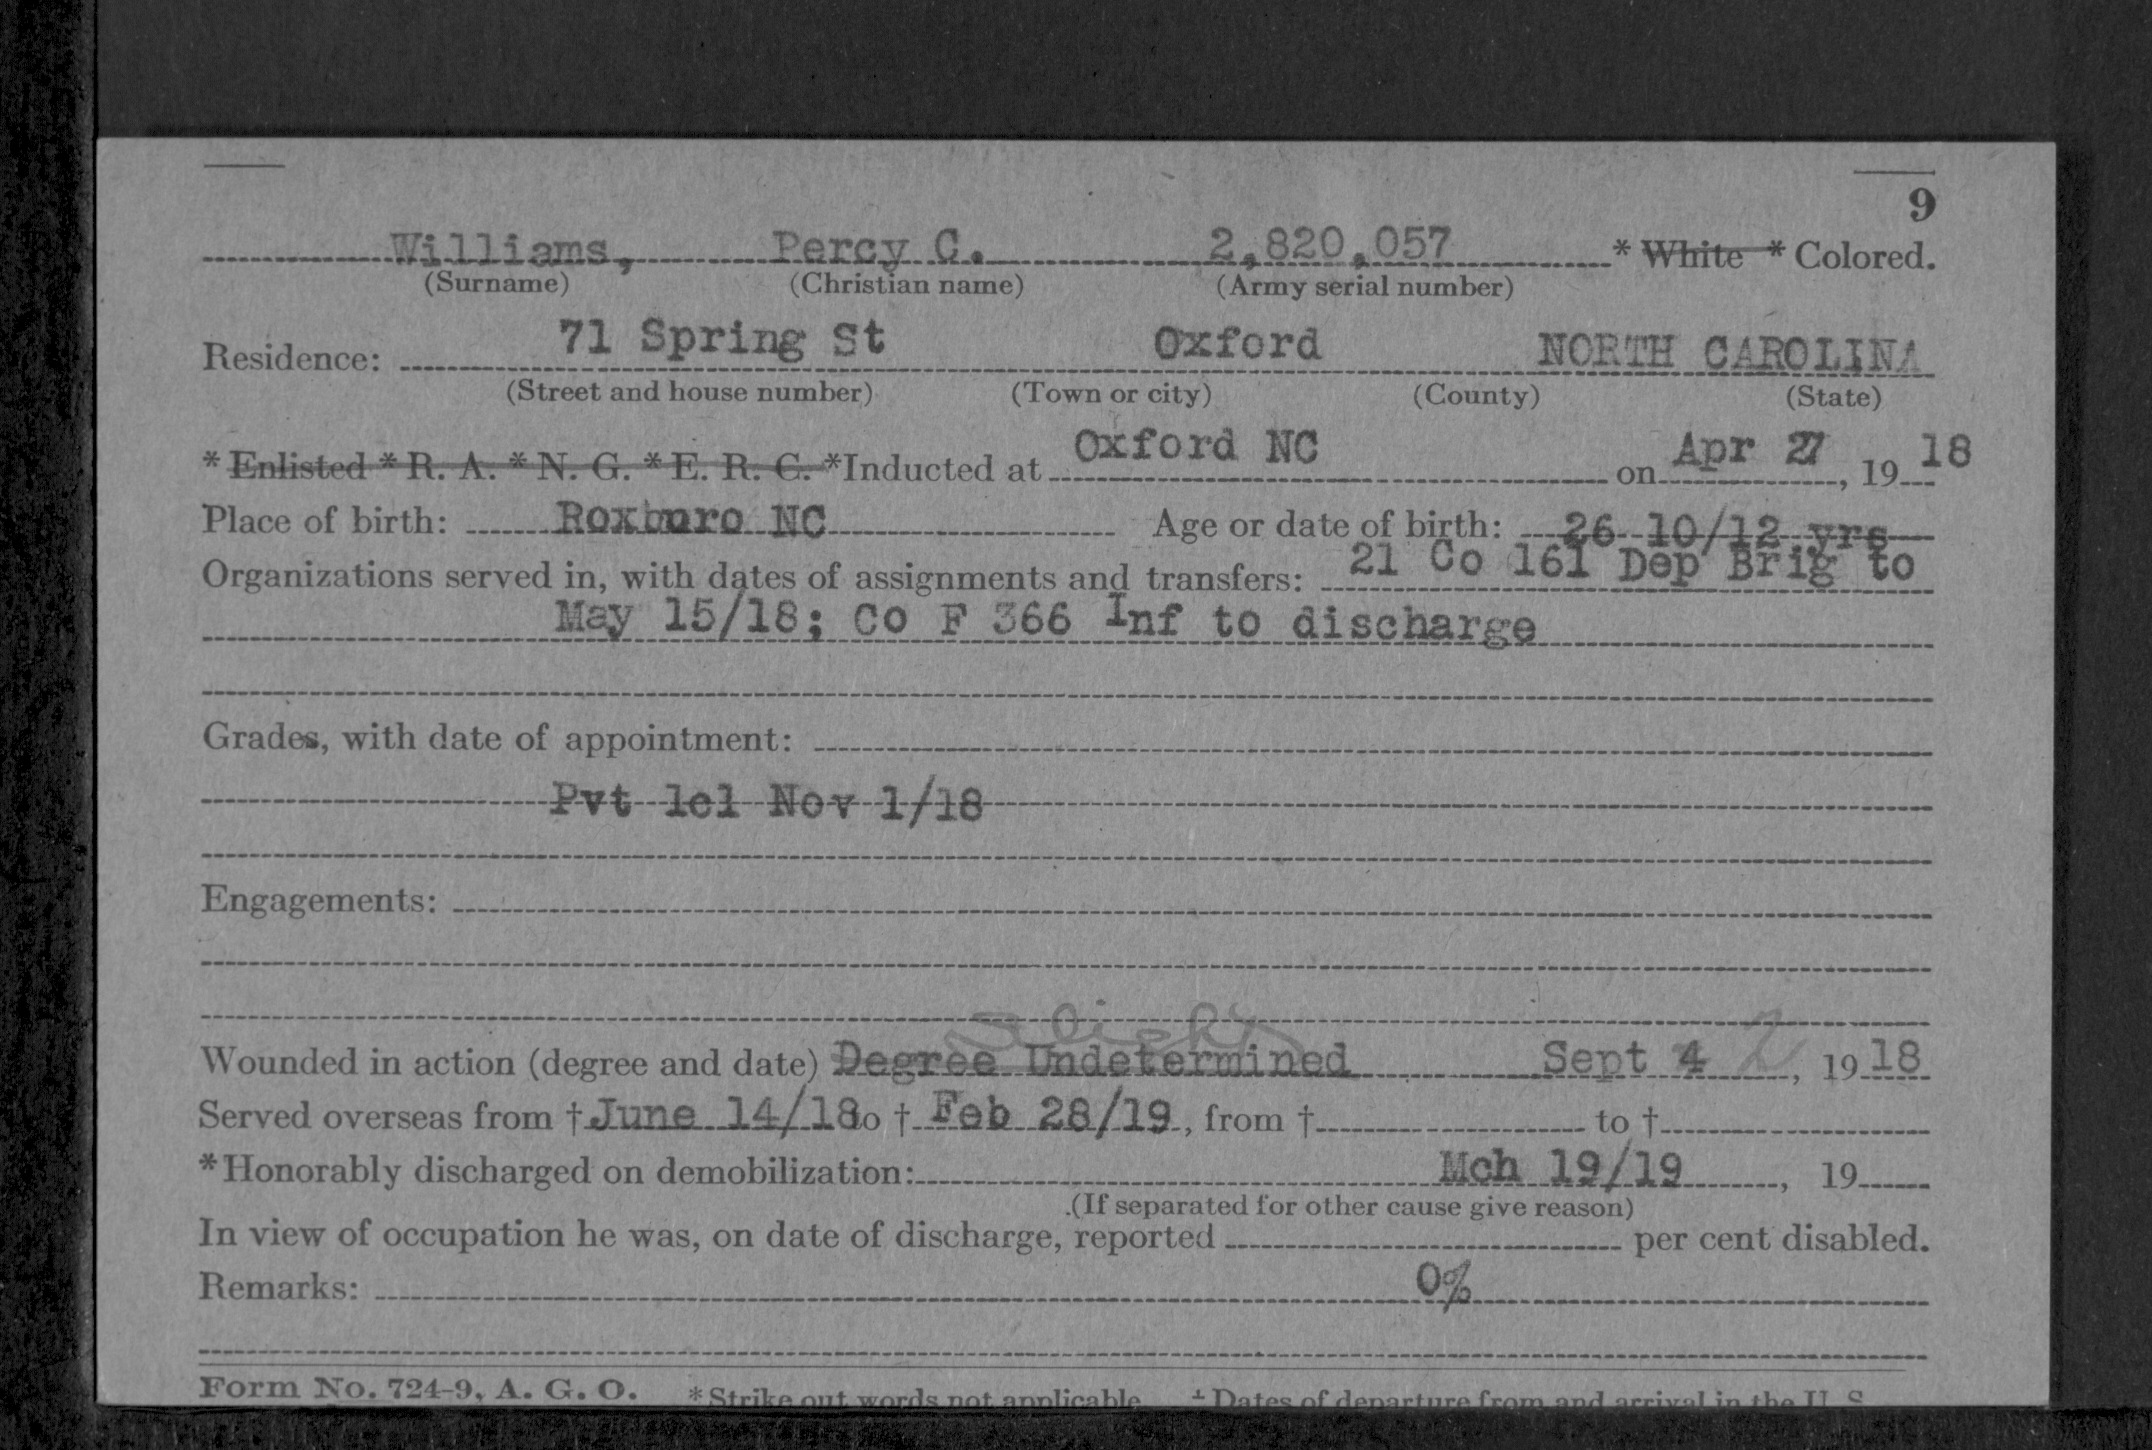 9
Williams, Percy C. 2,820,057 * White * Colored.
(Surname) (Christian name) (Army serial number)
Residence: 71 Spring St Oxford NORTH CAROLINA
(Street and house number) (Town or city) (County) (State)
* Enlisted * R. A. * N. G. * E. R. C. *Inducted at Oxford NC on Apr 27, 19 18
Place of birth: Roxburo NC Age or date of birth: 26 10/12 yrs
Organizations served in, with dates of assignments and transfers: 21 Co 161 Dep Brig to
May 15/18; Co F 366 Inf to discharge
Grades, with date of appointment:
Pvt 1cl Nov 1/18
Engagements:
Slight
Wounded in action (degree and date) Degree Undetermined Sept 4 2, 19 18
Served overseas from † June 14/18 to † Feb 28/19, from † to †
*Honorably discharged on demobilization: Mch 19/19, 19
(If separated for other cause give reason)
In view of occupation he was, on date of discharge, reported per cent disabled.
Remarks: 0%
Form No. 724-9, A. G. O. * Strike out words not applicable † Dates of departure from and arrival in the U. S.